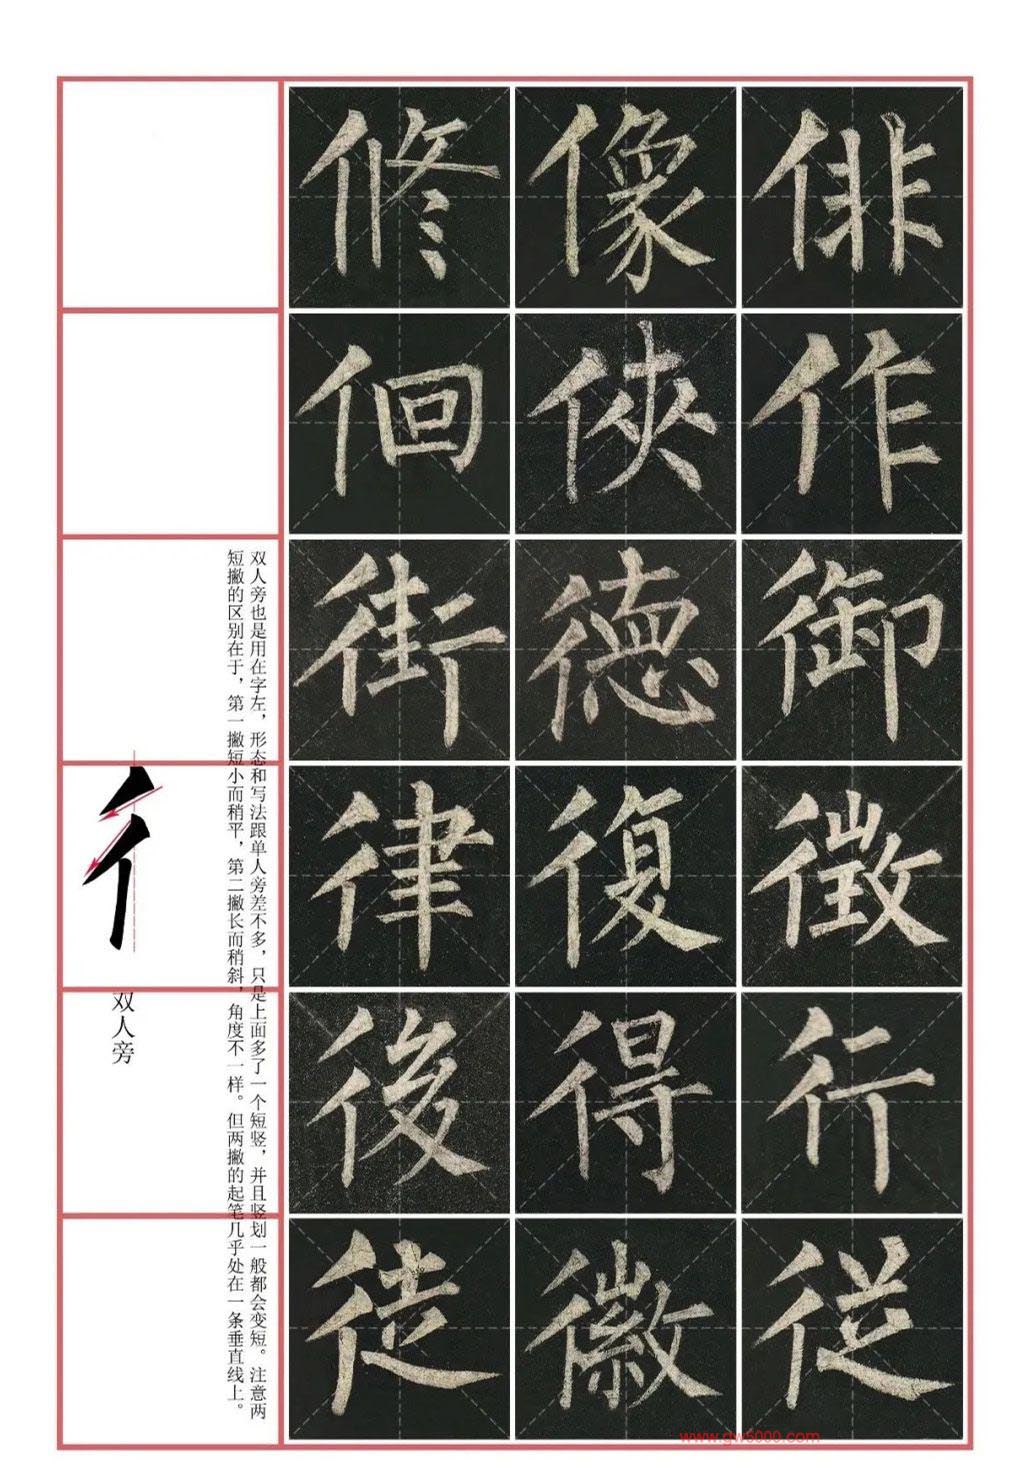 俳
作
御
徴
行
従
像
俠
德
復
得
徽
修
佪
街
律
後
徒
双人旁也是用在字左，形态和写法跟单人旁差不多，只是上面多了一个短竖，并且竖划一般都会变短。注意两
短撇的区别在于，第一撇短小而稍平，第二撇长而稍斜，角度不一样。但两撇的起笔几乎处在一条垂直线上。
彳
双人旁
www.gw5000.com